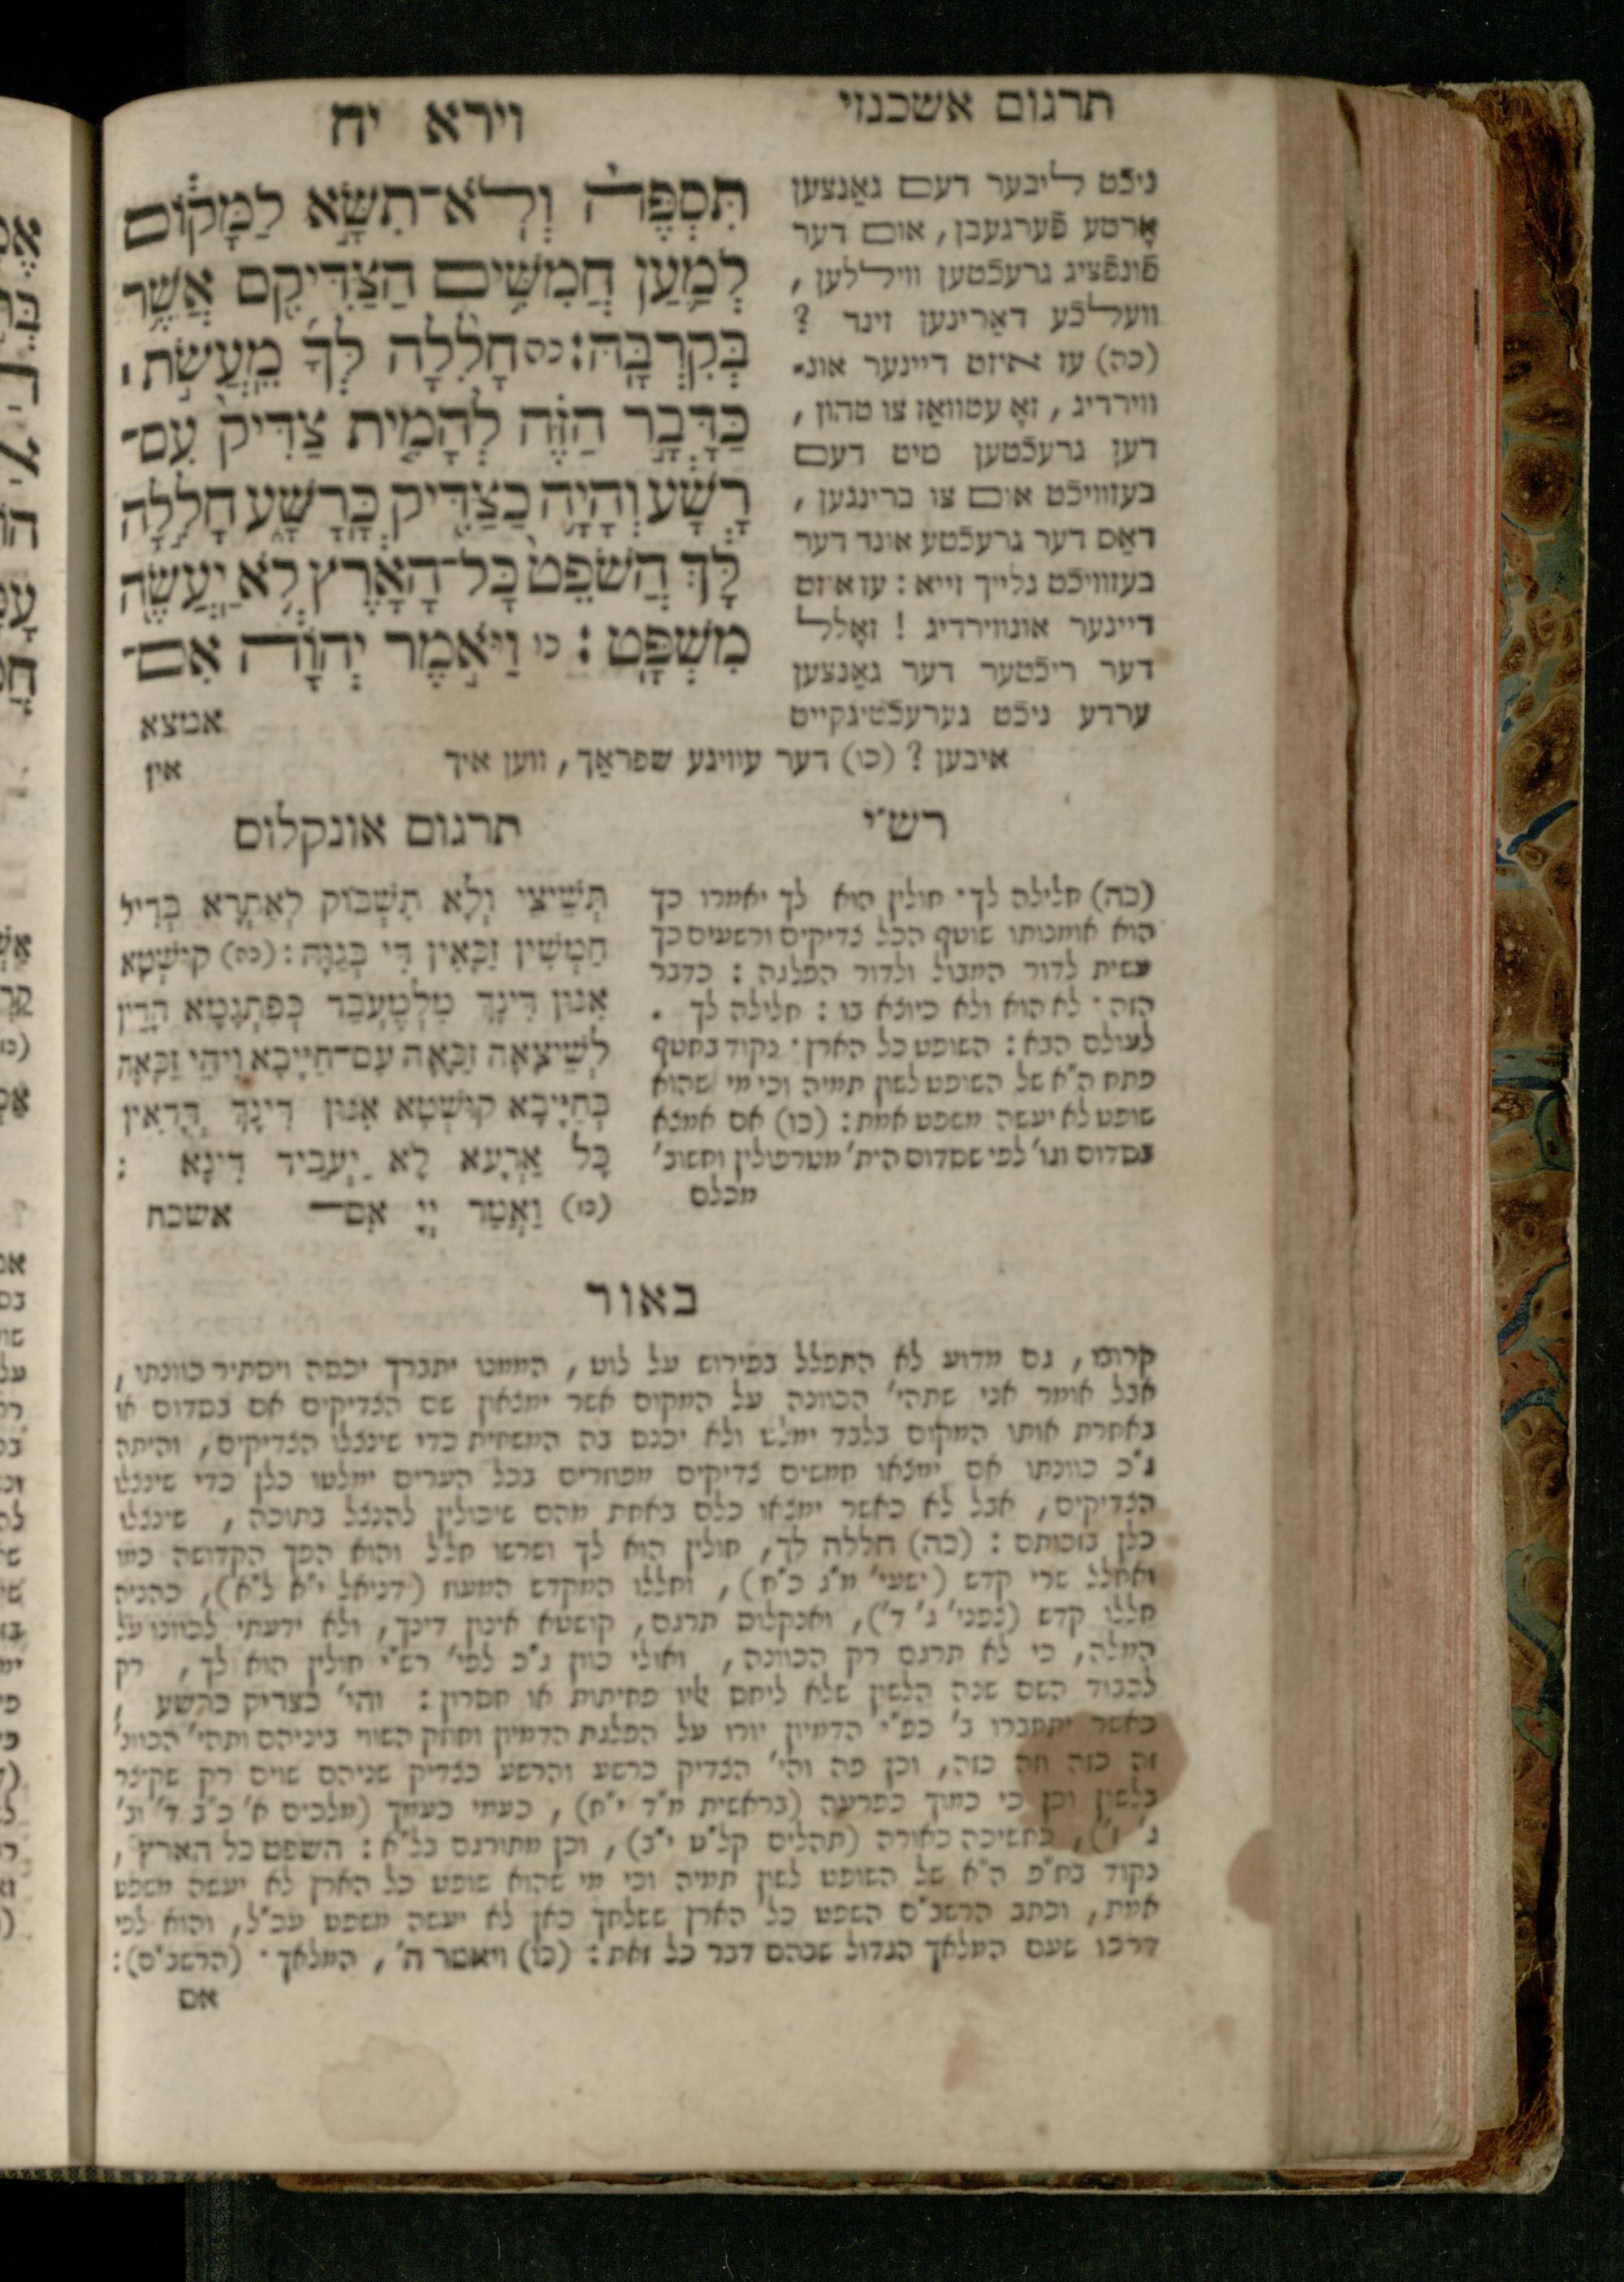 תרגום אשכנזי
וירא יח
תִּסְפֶּה וְלֹא־תִשָּׂא לַמָּקוֹם
לְמַעַן חֲמִשִּׁים הַצַּדִּיקִם אֲשֶׁר
בְּקִרְבָּהּ: כה חָלִלָה לְּךָ מֵעֲשֹׂת ׀
כַּדָּבָר הַזֶּה לְהָמִית צַדִּיק עִם־
רָשָׁע וְהָיָה כַצַּדִּיק כָּרָשָׁע חָלִלָה
לָּךְ הֲשֹׁפֵט כָּל־הָאָרֶץ לֹא יַעֲשֶׂה
מִשְׁפָּט: כו וַיֹּאמֶר יְהוָֹה אִם־
אמצא
ניכֿט ליבער דעם גאַנצען
אָרטע פֿערגעבן, אום דער
פֿינפֿציג גרעכֿטען ווילללען,
וועלכֿע דאַרינען זינד ?
(כה) עז איזט דיינער אונ־
ווירדיג, זאָ עטוואַז צו טהון,
דען גרעכֿטען מיט דעם
בעזוויכֿט אום צו ברינגען,
דאַס דער גרעכֿטע אונד דער
בעזוויכֿט גלייך זייא: עז איזט
דיינער אונווירדיג ! זאָלל
דער ריכֿטער דער גאַנצען
ערדע ניכֿט גערעכֿטיגקייט
איבען ? (כו) דער עוויגע שפראַך, ווען איך
אין
רש״י
(כה) חלילה לך· חולין הוא לך יאמרו כך
הוא אומנותו שוטף הכל צדיקים ורשעים כך
עשית לדור המבול ולדור הפלגה: כדבר
הזה· לא הוא ולא כיוצא בו: חלילה לך .
לעולם הבא: השופט כל הארץ· נקוד בחטף
פתח ה״א של השופט לשון תמיה וכי מי שהוא
שופט לא יעשה משפט אמת: (כו) אם אמצא
בסדום וגו׳ לפי שסדום הית׳ מטרפולין וחשוב׳
מכלם
תרגום אונקלוס
תְּשֵׁיצִי וְלָא תִשְׁבּוֹק לְאַתְרָא בְּדִיל
חַמְשִׁין זַכָּאִין דִּי בְגַוָּהּ: (כה) קוּשְׁטָא
אִנּוּן דִּינָךְ מִלְּמֶעְבַּד כְּפִתְגָמָא הָדֵין
לְשֵׁיצָאָה זַכָּאָה עִם־חַיָּיבָא וִיהֵי זַכָּאָה
כְּחַיָּיבָא קוּשְׁטָא אִנּוּן דִּינָךְ דְּדָאִין
כָּל אַרְעָא לָא יַעְבֵּיד דִּינָא :
(כו) וַאֲמַר יְיָ אִם־ אשכח
באור
קרובו, גם מדוע לא התפלל בפירוש על לוט, הממנו יתברך יכסה ויסתיר כוונתו,
אבל אומר אני שתהי׳ הכוונה על המקום אשר ימצאון שם הצדיקים אם בסדום או
באחרת אותו המקום בלבד ימלט ולא יכנס בה המשחית כדי שינצלו הצדיקים, והיתה
ג״כ כוונתו אם ימצאו חמשים צדיקים מפוזרים בכל הערים ימלטו כלן כדי שינצלו
הצדיקים, אבל לא כאשר ימצאו כלם באחת מהם שיכולין להנצל בתוכה, שינצלו
כלן בזכותם: (כה) חללה לך, חולין הוא לך ושרשו חלל והוא הפך הקדושה כמו
ואחלל שרי קדש (ישעי׳ מ״ג כ״ח), וחללו המקדש המעוז (דניאל י״א ל״א), כהניה
חללו קדש (צפני׳ ג׳ ד׳), ואנקלוס תרגם, קושטא אינון דינך, ולא ידעתי לכוונו על
המלה, כי לא תרגם רק הכוונה, ואולי כוון ג״כ לפי׳ רש״י חולין הוא לך, רק
לכבוד השם שנה הלשון שלא ליחס אליו פחיתות או חסרון: והי׳ כצדיק כרשע ,
כאשר יתחברו ב׳ כפ״י הדמיון יורו על הפלגת הדמיון וחזק השווי ביניהם ותהי׳ הכוונ׳
זה כזה וזה כזה, וכן פה והי׳ הצדיק כרשע והרשע כצדיק שניהם שוים רק שקיצר
בלשון וכן כי כמוך כפרעה (בראשית מ״ד י״ח), כעמי כעמך (מלכים א׳ כ״ב ד׳ וב׳
ג׳ ז׳), כחשיכה כאורה (תהלים קל״ט י״ב), וכן מתורגם בל״א: השפט כל הארץ,
נקוד בח״פ ה״א של השופט לשון תמיה וכי מי שהוא שופט כל הארץ לא יעשה משפט
אמת, וכתב הרשב״ם השפט כל הארץ ששלחך כאן לא יעשה משפט עכ״ל, והוא לפי
דרכו שעם המלאך הגדול שבהם דבר כל זאת: (כו) ויאמר ה׳, המלאך· (הרשב״ם):
אם